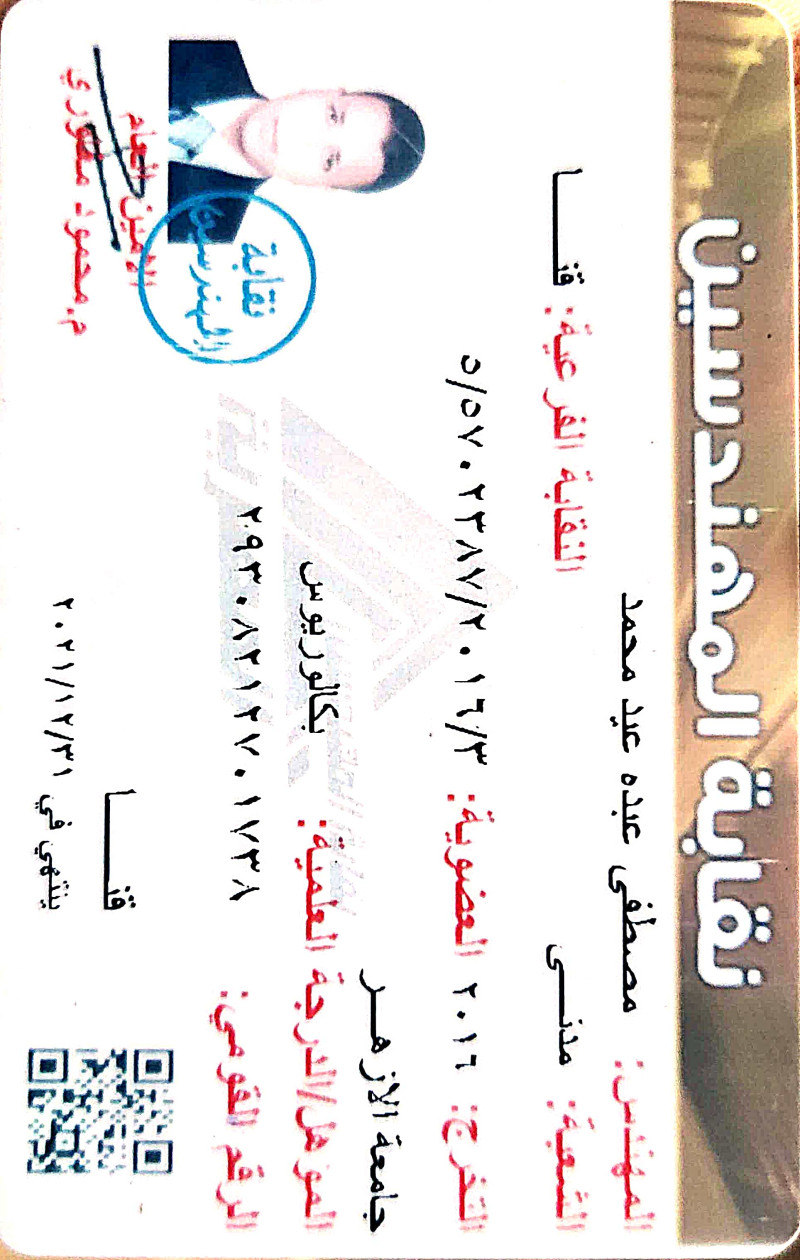 نقابة المهندسين
المهندس: مصطفى عبده عيد محمد
الشعبة: مدنى النقابة الفرعية: قنا
التخرج: ٢٠١٦ العضوية: ٥/٥٧٠٢٣٨٧/٢٠١٦/٣
جامعة الازهر
المؤهل/الدرجة العلمية: بكالوريوس
الرقم القومي: ٢٩٣٠٨٢١٢٧٠١٧٣٨
نقابة
المهندسين
الامين العام
م.محمود مغاوري
قنا
ينتهي في ٢٠٢١/١٢/٣١